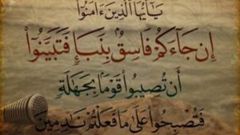 يَا أَيُّهَا الَّذِينَ آمَنُوا
إِن جَاءَكُمْ فَاسِقٌ بِنَبَإٍ فَتَبَيَّنُوا
أَن تُصِيبُوا قَوْمًا بِجَهَالَةٍ
فَتُصْبِحُوا عَلَىٰ مَا فَعَلْتُمْ نَادِمِينَ